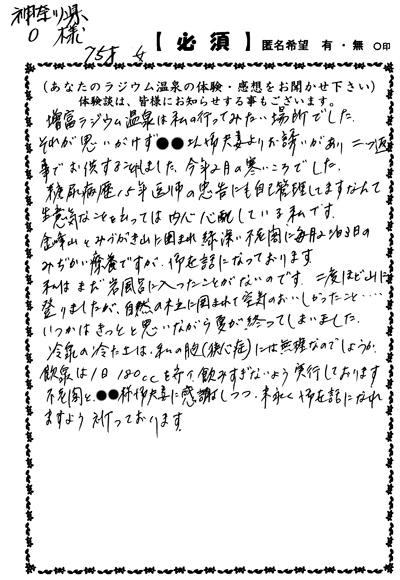 神奈川県
O 様
75才 女
【必須】 匿名希望 有・無 ○印
(あなたのラジウム温泉の体験・感想をお聞かせ下さい)
体験談は、皆様にお知らせする事もございます。
増富ラジウム温泉は私の行ってみたい場所でした。
それが思いがけず●●様御夫妻よりお誘いがあり 二つ返
事でお供する事にしました。今年2月の寒いころでした。
糖尿病歴15年医師の忠告にも自己管理してますなんて
生意気なことを言っては内心心配している私です。
金峰山とみづがき山に囲まれ緑深い不老閣に毎月2泊3日の
みぢかい療養ですが、御世話になっております
私はまだ岩風呂に入ったことがないのです。二度ほど山に
登りましたが、自然の木立に囲まれて空気のおいしかったこと・・・・
いつかはきっとと思いながら夏が終ってしまいました。
冷泉の冷たさは、私の脳(狭心症)には無理なのでしょうか.
飲泉は1日180ccを守り、飲みすぎないよう実行しております
不老閣と、●●様御夫妻に感謝しつつ、末永く御世話になれ
ますよう祈っております.